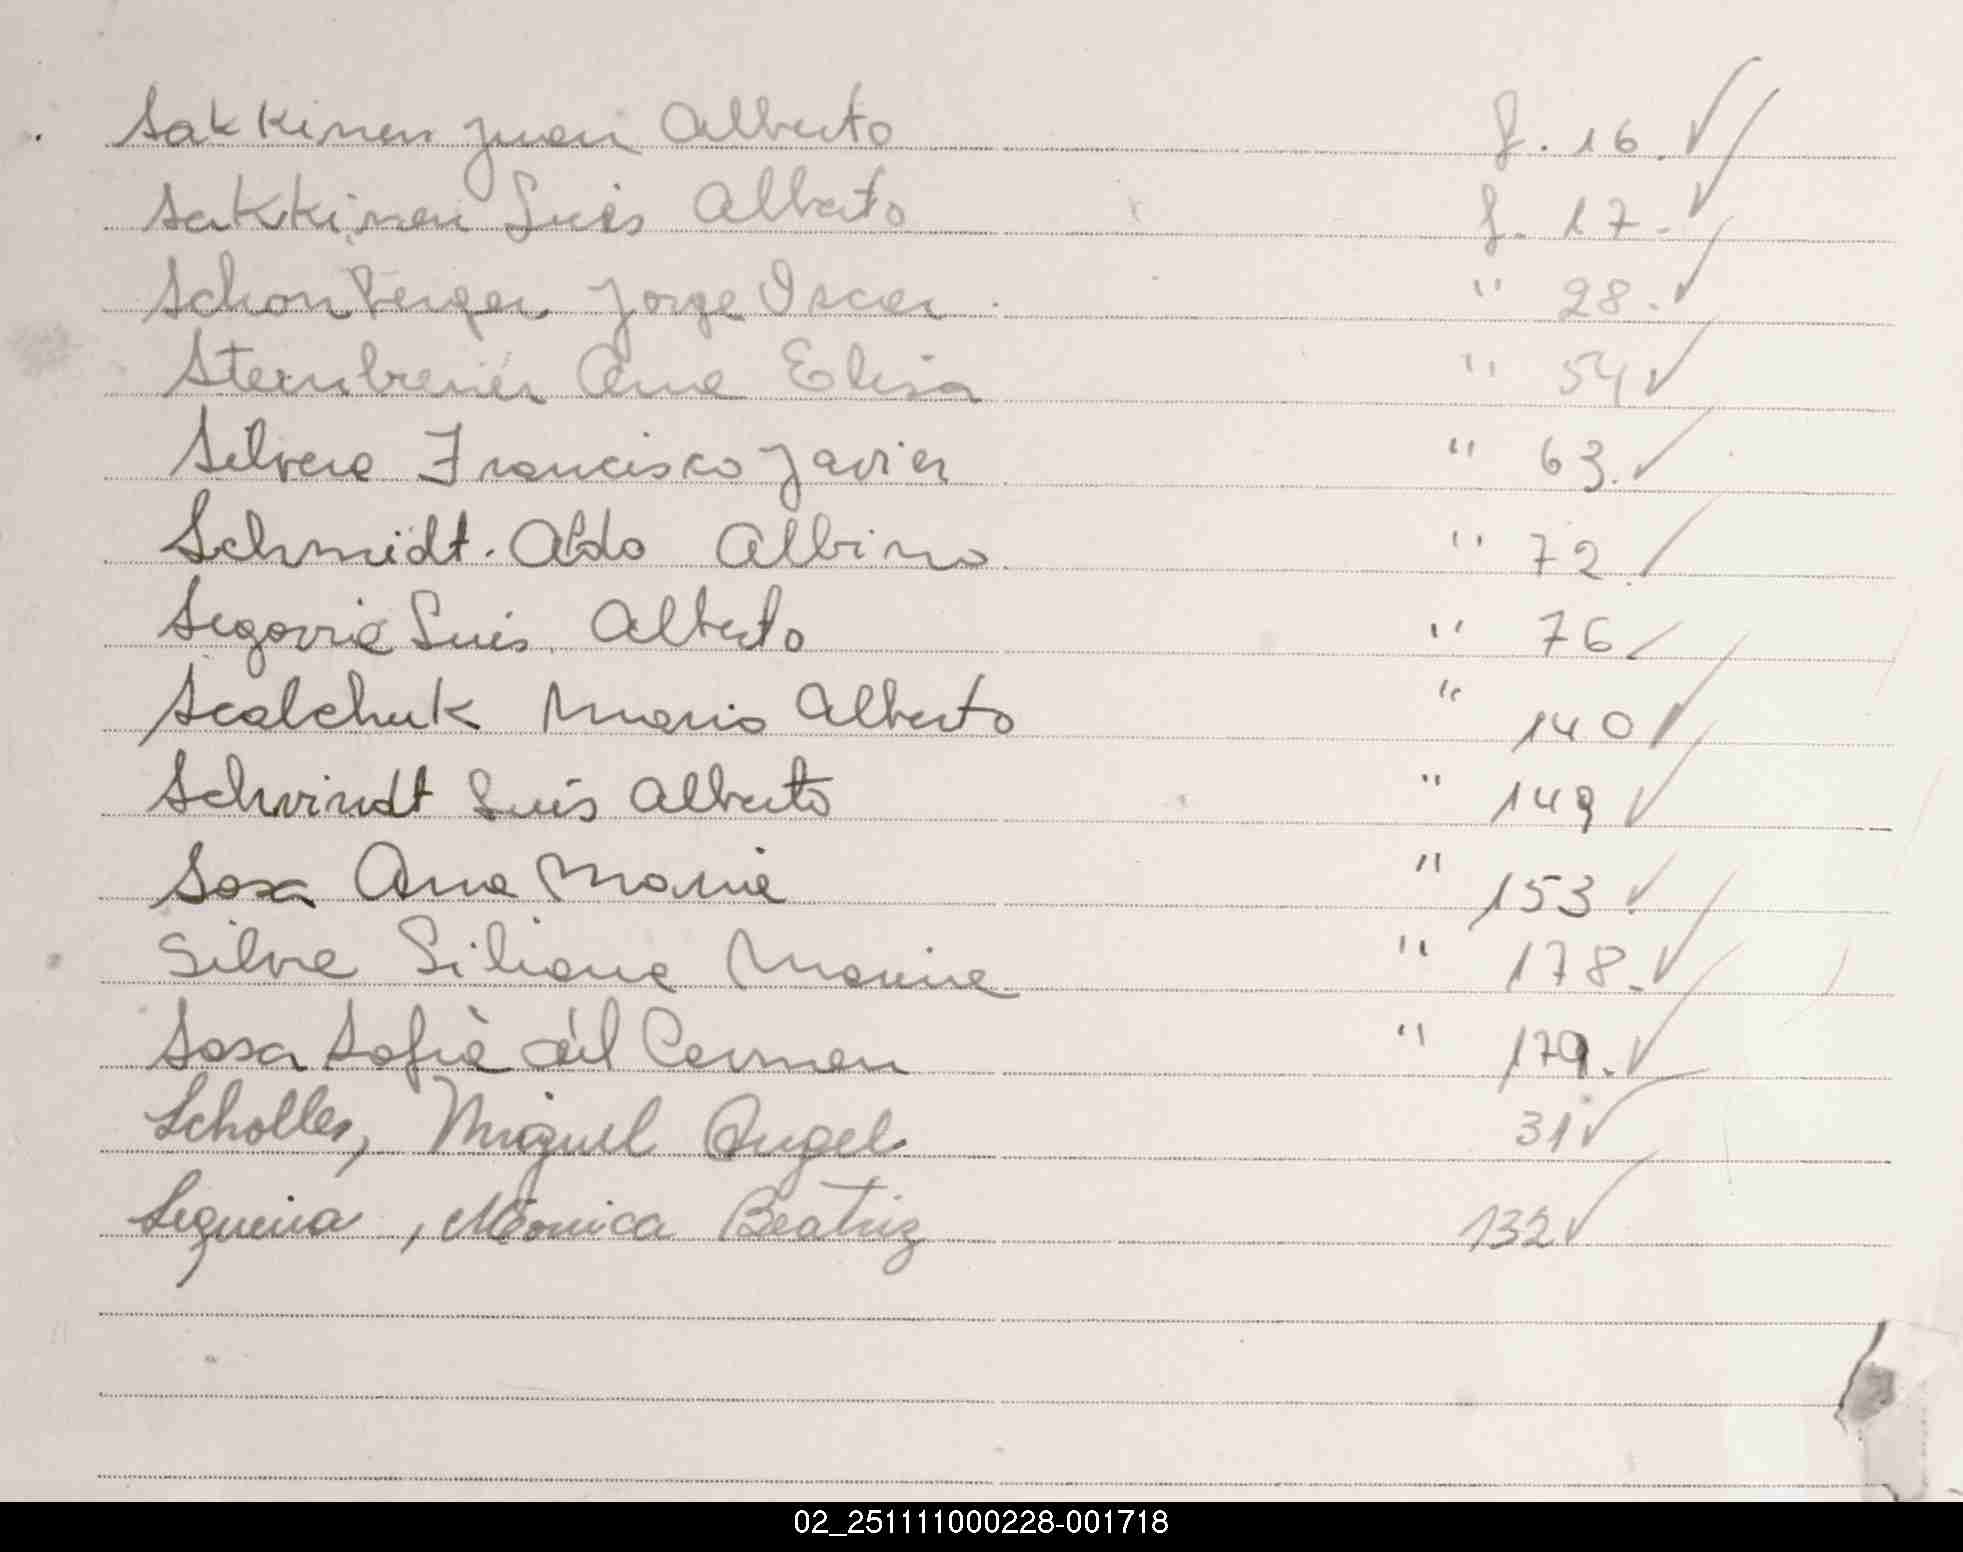 Sakkinen Juan Alberto f. 16. ✓
Sakkinen Luis Alberto f. 17. ✓
Schonberger Jorge Oscar. " 28. ✓
Ana Elisa " 54 ✓
Silvera Francisco Javier " 63. ✓
Schmidt. Aldo Albino " 72. ✓
Segovia Luis Alberto " 76 ✓
Scalchuk Mario Alberto " 140 ✓
Schvindt Luis Alberto " 149 ✓
Sosa Ana Maria " 153 ✓
Silva Liliana Marina " 178. ✓
Sosa Sofia del Carmen " 179. ✓
Scholles, Miguel Angel. 31 ✓
Sequeira, Monica Beatriz 132 ✓
02_251111000228-001718